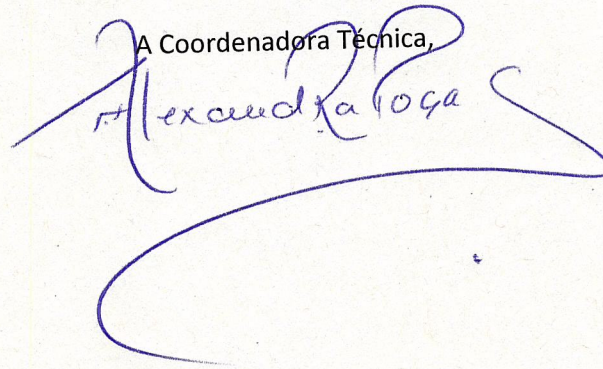 A Coordenadora Técnica,
Alexandra Poça